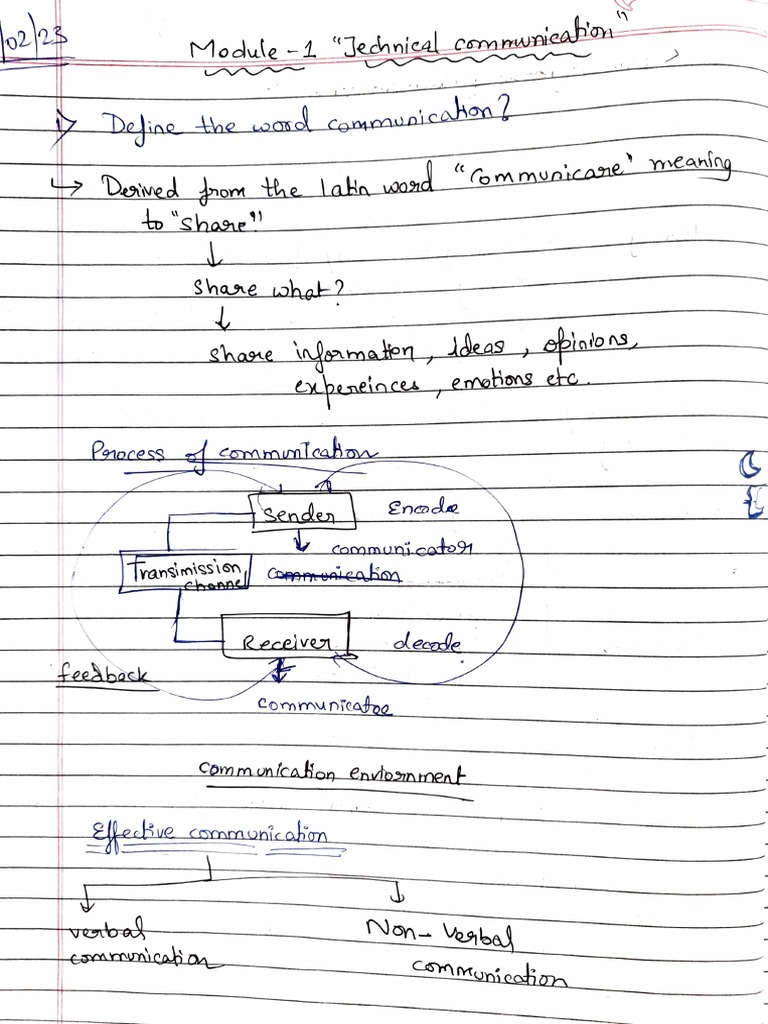 /02/23
Module-1 "Technical communication"
1> Define the word communication?
↳ Derived from the latin word "communicare" meaning
to "share"
↓
share what?
↓
share information, ideas, opinions,
expereinces, emotions etc.
Process of communication
Sender Encode
communicator
Transimission communication
channel
Receiver decode
feedback
communicatee
communication enviornment
Effective communication
verbal Non-Verbal
communication communication